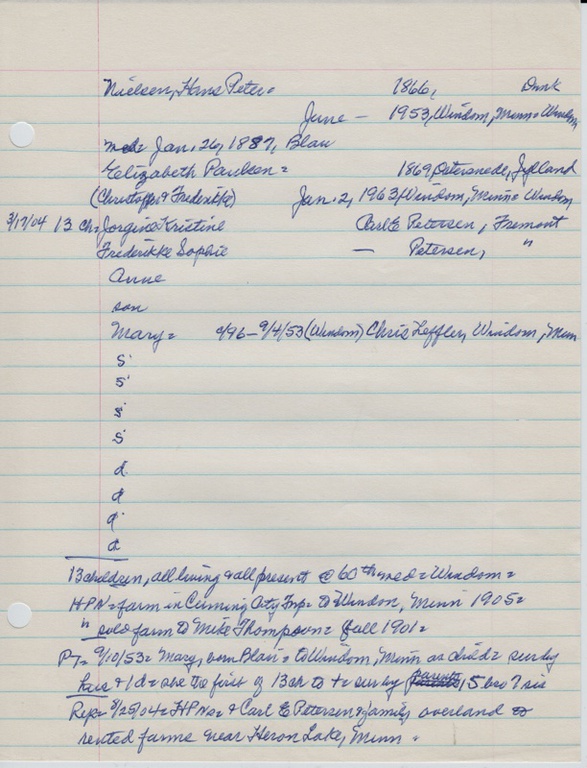 Nielsen, Hans Peter = 1866, Dmk
June — 1953, Windom, Minn = Windom
md = Jan. 26, 1887, Blair
Elizabeth Paulsen = 1869, Jylland
(Christoffer & Frederikke) Jan. 2, 1963, Windom, Minn = Windom
3/17/04 13 ch = Jorgine Kristine Carl E Petersen, Fremont
Frederikke Sophie — Petersen, "
Anne
son
Mary = c/96 – 9/4/53 (Windom) Chris Leffler, Windom, Minn
s
s
s
s
d
d
d
d
13 children, all living & all present @ 60th wed = Windom =
HPN = farm in Cuming City Twp = to Windom, Minn 1905 =
" sold farm to Mike Thompson = fall 1901 =
PT = 9/10/53 = Mary, born Blair = to Windom, Minn as child = sur by
hus & 1 d = she the first of 13 ch to † = sur by , 5 bro 7 sis
Rep = 8/25/04 = HPNs = & Carl E Petersen & family overland to
rented farms near Heron Lake, Minn.